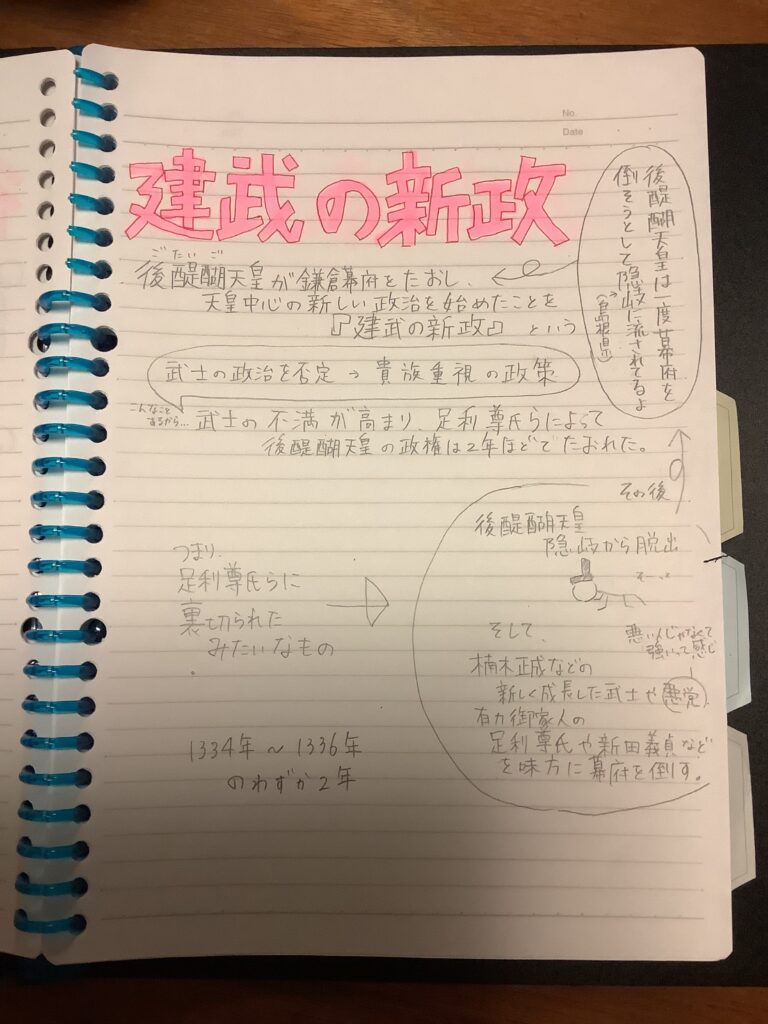 No.
Date
建武の新政
後醍醐天皇は一度幕府を
倒そうとして隠岐に流されてるよ
(島根県)
ごだいご
後醍醐天皇が鎌倉幕府をたおし、
天皇中心の新しい政治を始めたことを
『建武の新政』という
武士の政治を否定→貴族重視の政策
こんなこと
するから…
武士の不満が高まり、足利尊氏らによって
後醍醐天皇の政権は2年ほどでたおれた。
その後
後醍醐天皇
隠岐から脱出
そーっと
そして、
悪い人じゃなくて
強いって感じ
楠木正成などの
新しく成長した武士や悪党
有力御家人の
足利尊氏や新田義貞など
を味方に幕府を倒す。
つまり、
足利尊氏らに
裏切られた
みたいなもの
1334年～1336年
のわずか2年